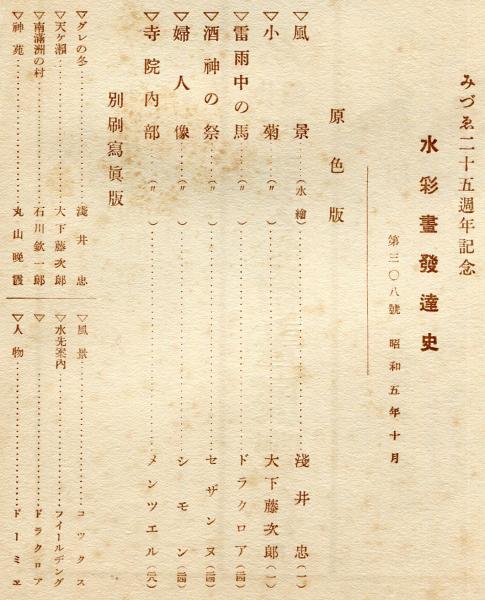 みづゑ二十五週年記念
水彩畫發達史
第三〇八號 昭和五年十月
原色版
▽風景……(水繪)……淺井忠(一)
▽小菊……(〃)……大下藤次郎(一)
▽雷雨中の馬……(〃)……ドラクロア(四)
▽酒神の祭……(〃)……セザンヌ(四)
▽婦人像……(〃)……シモン(四)
▽寺院内部……(〃)……メンツエル(六)
別刷寫眞版
▽グレの冬……淺井忠
▽天ヶ瀬……大下藤次郎
▽南滿洲の村……石川欽一郎
▽神苑……丸山晩霞
▽風景……コツクス
▽水先案内……フイールデング
▽……ドラクロア
▽人物……ドーミエ